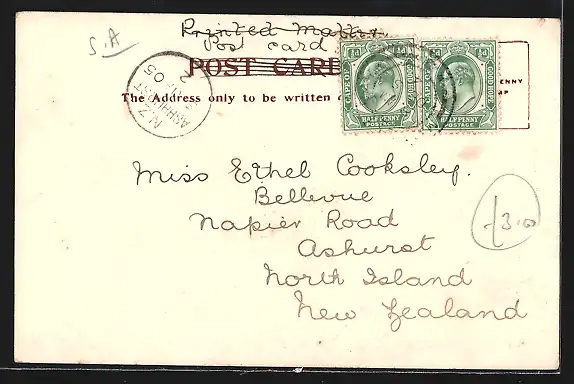 S.A
Printed Matter
Post card
POST CARD
The Address only to be written
CAPE OF GOOD HOPE ½d HALFPENNY POSTAGE
GOOD HOPE ½d HALFPENNY POSTAGE
ENNY
MP
N.Z
ASHHURST
05
Miss Ethel Cooksley.
Bellevue
Napier Road
Ashurst
North Island
New Zealand
3.00